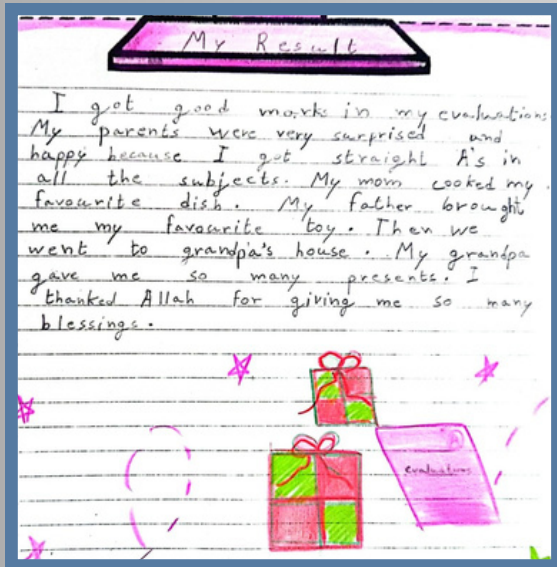 My Result
I got good marks in my evaluations.
My parents were very surprised and
happy because I got straight A's in
all the subjects. My mom cooked my
favourite dish. My father brought
me my favourite toy. Then we
went to grandpa's house. My grandpa
gave me so many presents. I
thanked Allah for giving me so many
blessings.
evaluations